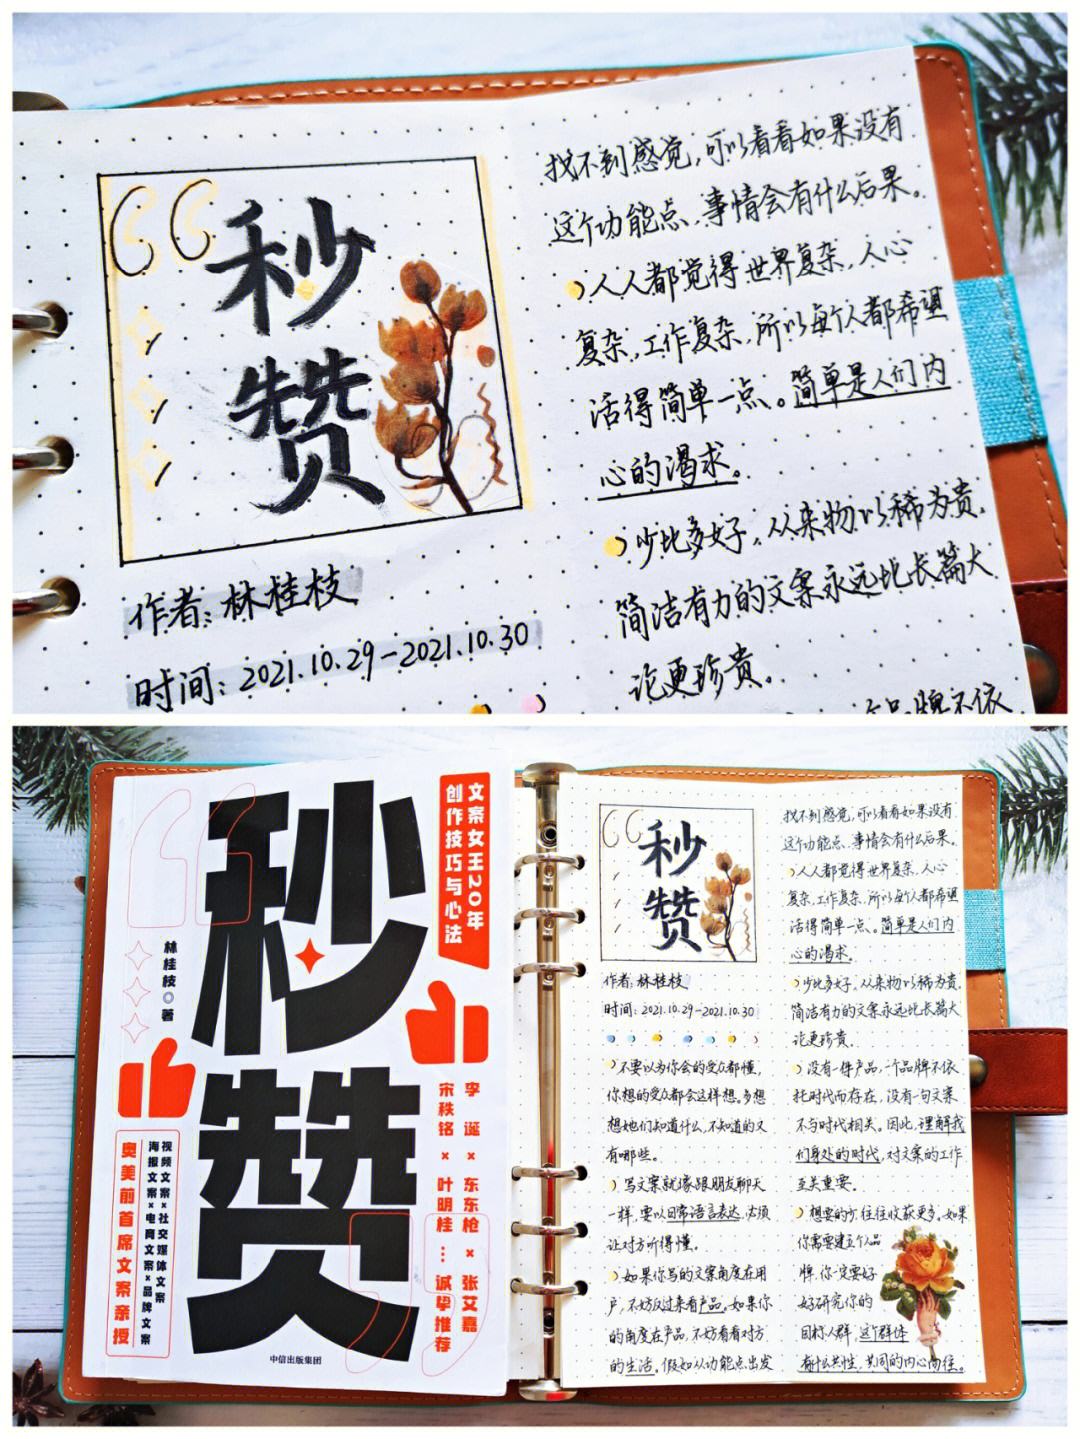 秒赞
作者：林桂枝
时间：2021.10.29-2021.10.30
找不到感觉，可以看看如果没有
这个功能点，事情会有什么后果。
人人都觉得世界复杂，人心
复杂，工作复杂，所以每个人都希望
活得简单一点。简单是人们内
心的渴求。
少比多好。从来物以稀为贵，
简洁有力的文案永远比长篇大
论更珍贵。
个品牌不依
秒赞
文案女王20年
创作技巧与心法
林桂枝◎著
李诞×东东枪×张艾嘉
宋秩铭×叶明桂…诚挚推荐
视频文案×社交媒体文案
海报文案×电商文案×品牌文案
奥美前首席文案亲授
中信出版集团
秒赞
作者：林桂枝
时间：2021.10.29-2021.10.30
不要以为你会的受众都懂，
你想的受众都会这样想。多想
想她们知道什么，不知道的又
有哪些。
写文案就像跟朋友聊天
一样，要以日常语言表达，必须
让对方听得懂。
如果你写的文案角度在用
户，不妨反过来看产品。如果你
的角度在产品，不妨看看对方
的生活。假如从功能点出发
找不到感觉，可以看看如果没有
这个功能点，事情会有什么后果。
人人都觉得世界复杂，人心
复杂，工作复杂，所以每个人都希望
活得简单一点。简单是人们内
心的渴求。
少比多好。从来物以稀为贵，
简洁有力的文案永远比长篇大
论更珍贵。
没有一件产品，一个品牌不依
托时代而存在，没有一句文案
不与时代相关。因此，理解我
们身处的时代，对文案的工作
至关重要。
想要的少，往往收获更多。如果
你需要建立个人品
牌，你一定要好
好研究你的
目标人群，这个群体
有什么共性，共同的内心向往。